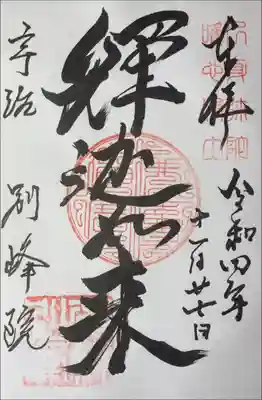 奉拝
令和四年
十一月廿七日
釋迦如来
宇治
別峰院